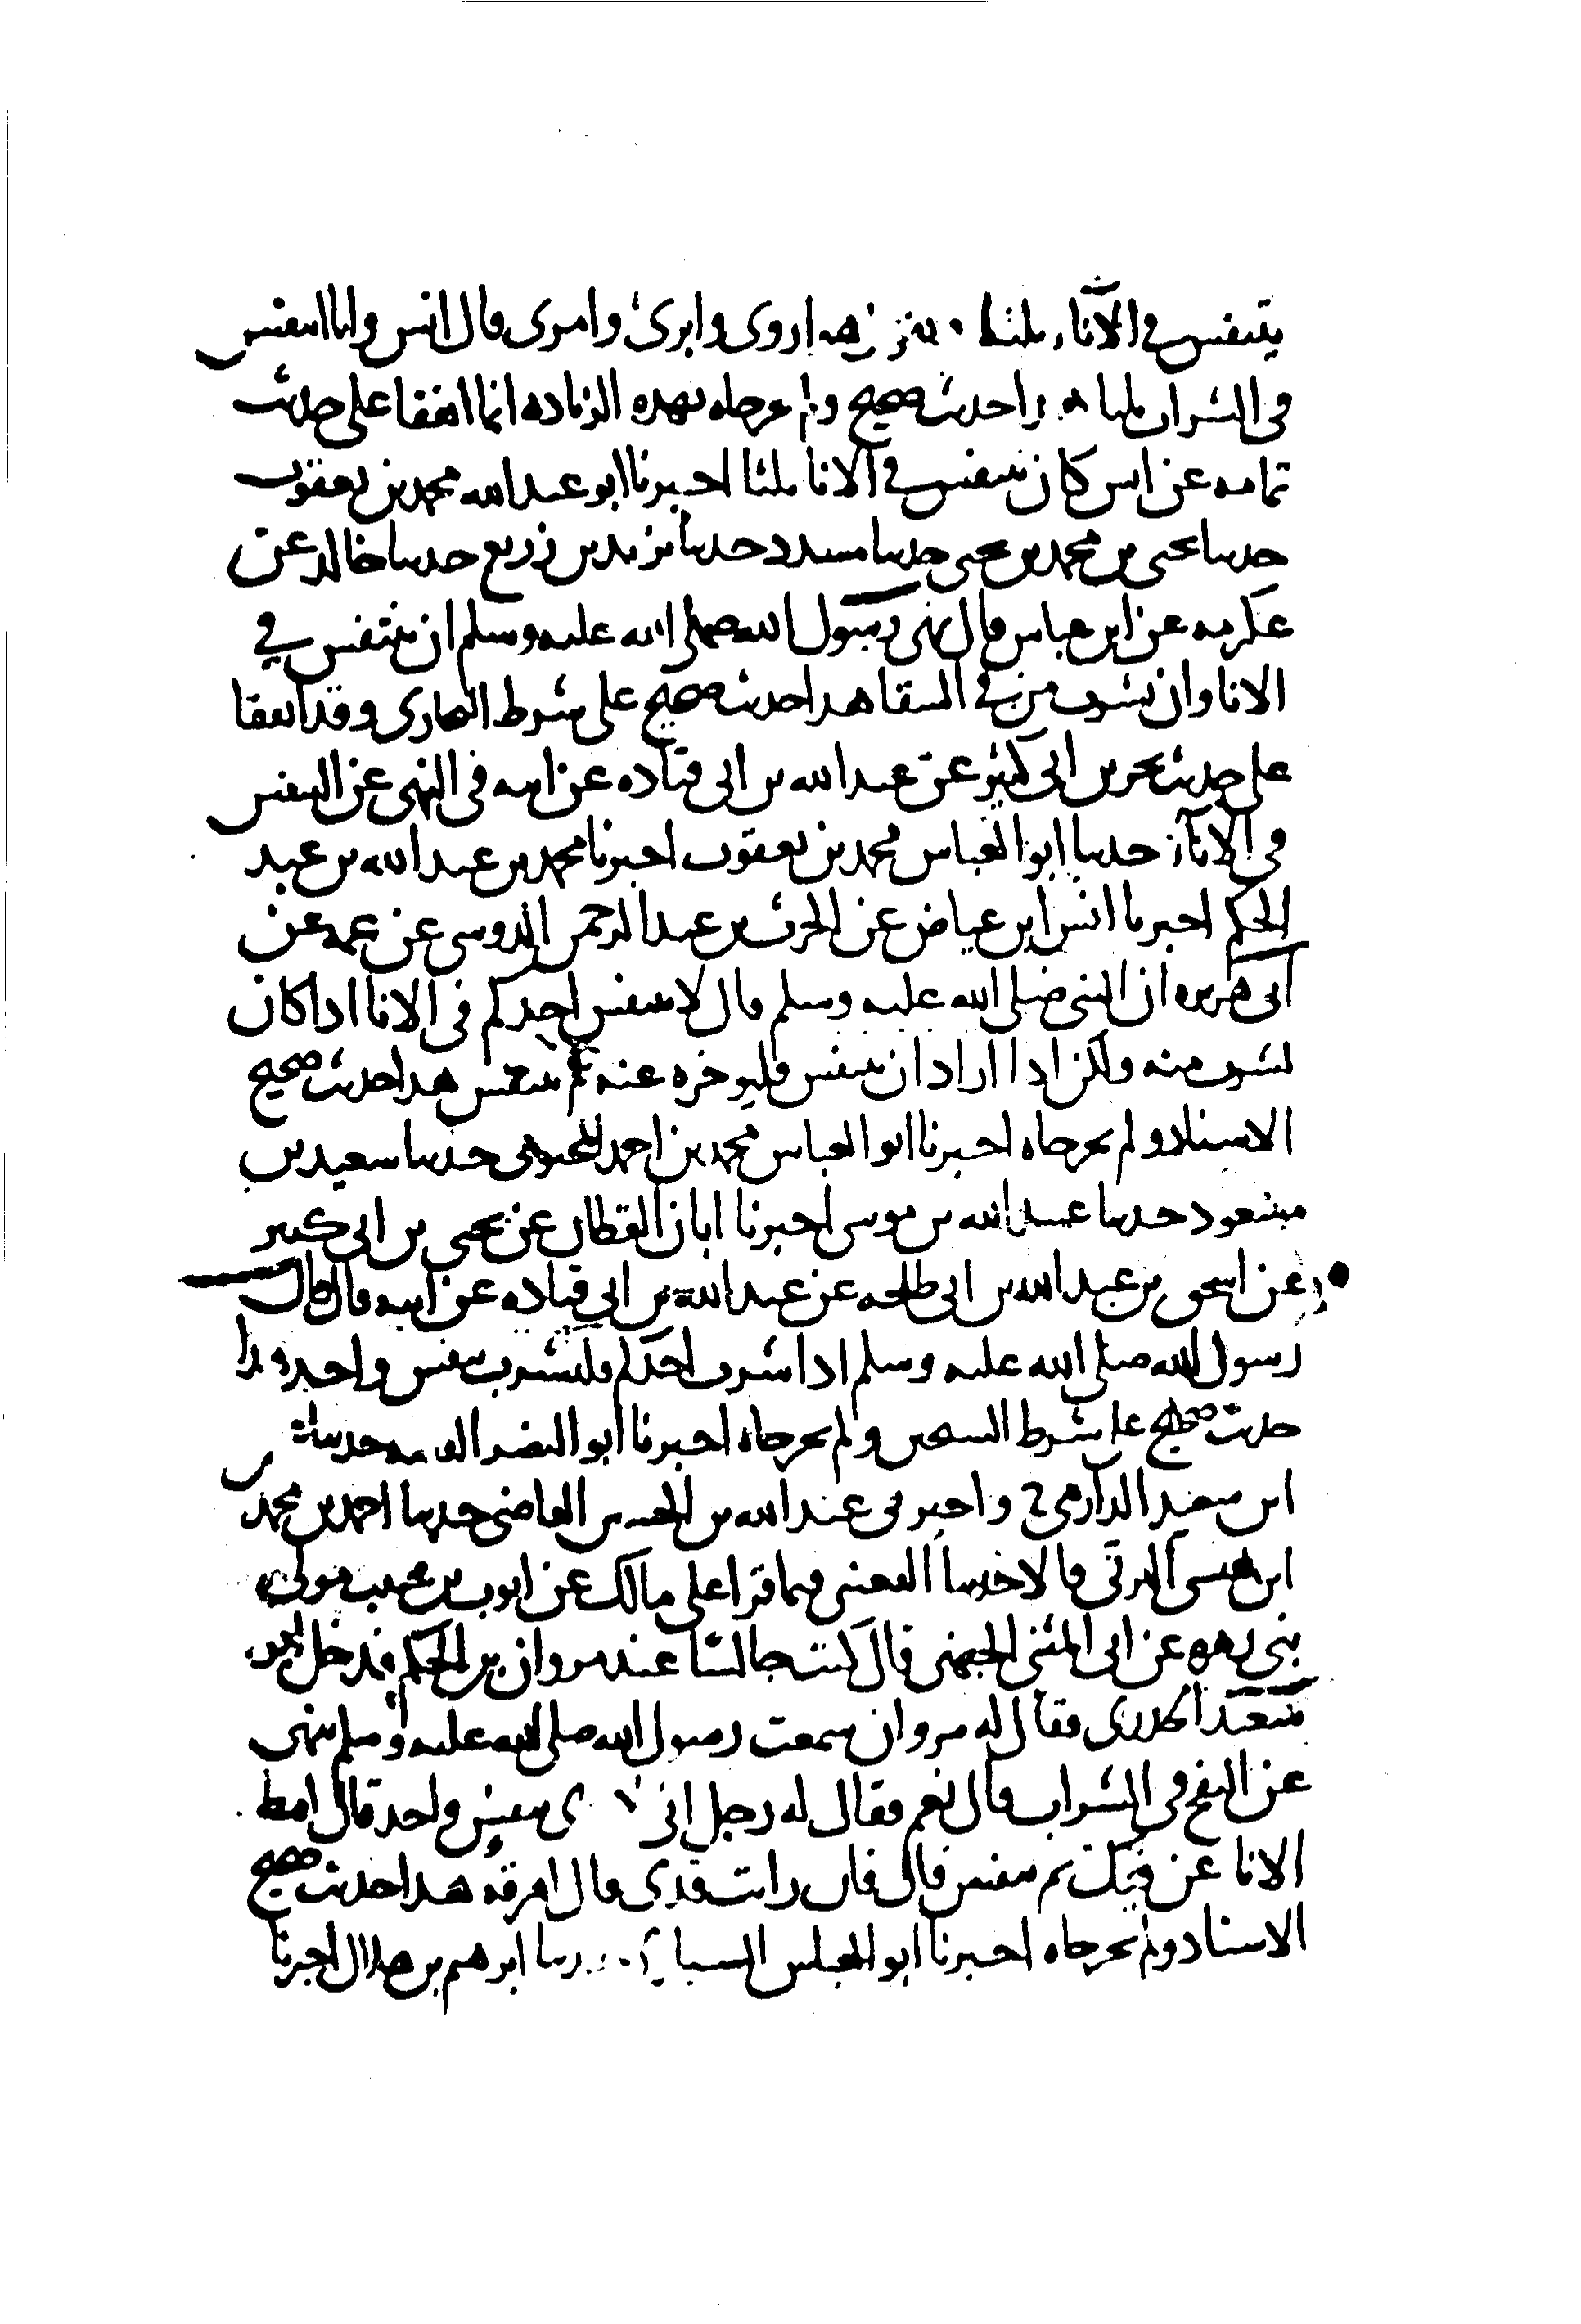 يتنفس في الاناء ثلثا هو اروى وابرئ وامرى قال انس وانا اتنفس
في الشراب ثلثا هذا حديث صحيح ولم يخرجاه بهذه الزيادة انما اتفقا على حديث
ثمامه عن انس كان يتنفس في الانا ثلثا اخبرنا ابو عبد الله محمد بن يعقوب
حدثنا يحيى بن محمد بن يحيى حدثنا مسدد حدثنا يزيد بن زريع حدثنا خالد عن
عكرمه عن ابن عباس قال نهى رسول الله صلى الله عليه وسلم ان يتنفس في
الانا وان يشرب من في السقا هذا حديث صحيح على شرط البخاري وقد اتفقا
على حديث يحيى بن ابي كثير عن عبد الله بن ابي قتاده عن ابيه في النهي عن التنفس
في الاناء حدثنا ابو العباس محمد بن يعقوب اخبرنا محمد بن عبد الله بن عبد
الحكم اخبرنا انس ابن عياض عن الحرث بن عبد الرحمن الدوسي عن عمه عن
ابي هريره ان النبي صلى الله عليه وسلم قال لا يتنفس احدكم في الانا اذا كان
يشرب منه ولكن اذا اراد ان يتنفس فليوخره عنه ثم يتنفس هذا حديث صحيح
الاسناد ولم يخرجاه اخبرنا ابو العباس محمد بن احمد المحبوبي حدثنا سعيد بن
مسعود حدثنا عبيد الله بن موسى اخبرنا ابان القطان عن يحيى بن ابي كثير
عن اسحق بن عبد الله بن ابي طلحه عن عبد الله بن ابي قتاده عن ابيه قال قال
رسول الله صلى الله عليه وسلم اذا شرب احدكم فليشرب بنفس واحد هذا
حديث صحيح على شرط الشيخين ولم يخرجاه اخبرنا ابو النضر الفقيه حدثنا
ابن سعيد الدارمي ح واخبرني عبد الله بن القاضي حدثنا احمد بن محمد بن
ابن عيسى البرتي قالا حدثنا القعنبي فيما قرا على مالك عن ايوب بن حبيب مولى
بني زهره عن ابي المثنى الجهني قال كنت جالسا عند مروان بن الحكم فدخل ابو
سعيد الخدري فقال له مروان سمعت رسول الله صلى الله عليه وسلم ينهى
عن النفخ في الشراب قال نعم فقال له رجل اني لا اروى بنفس واحد قال امط
الانا عن فيك ثم تنفس قال فان رايت قذى قال اهرقه هذا حديث صحيح
الاسناد ولم يخرجاه اخبرنا ابو العباس السياري حدثنا ابرهيم بن هلال اخبرنا